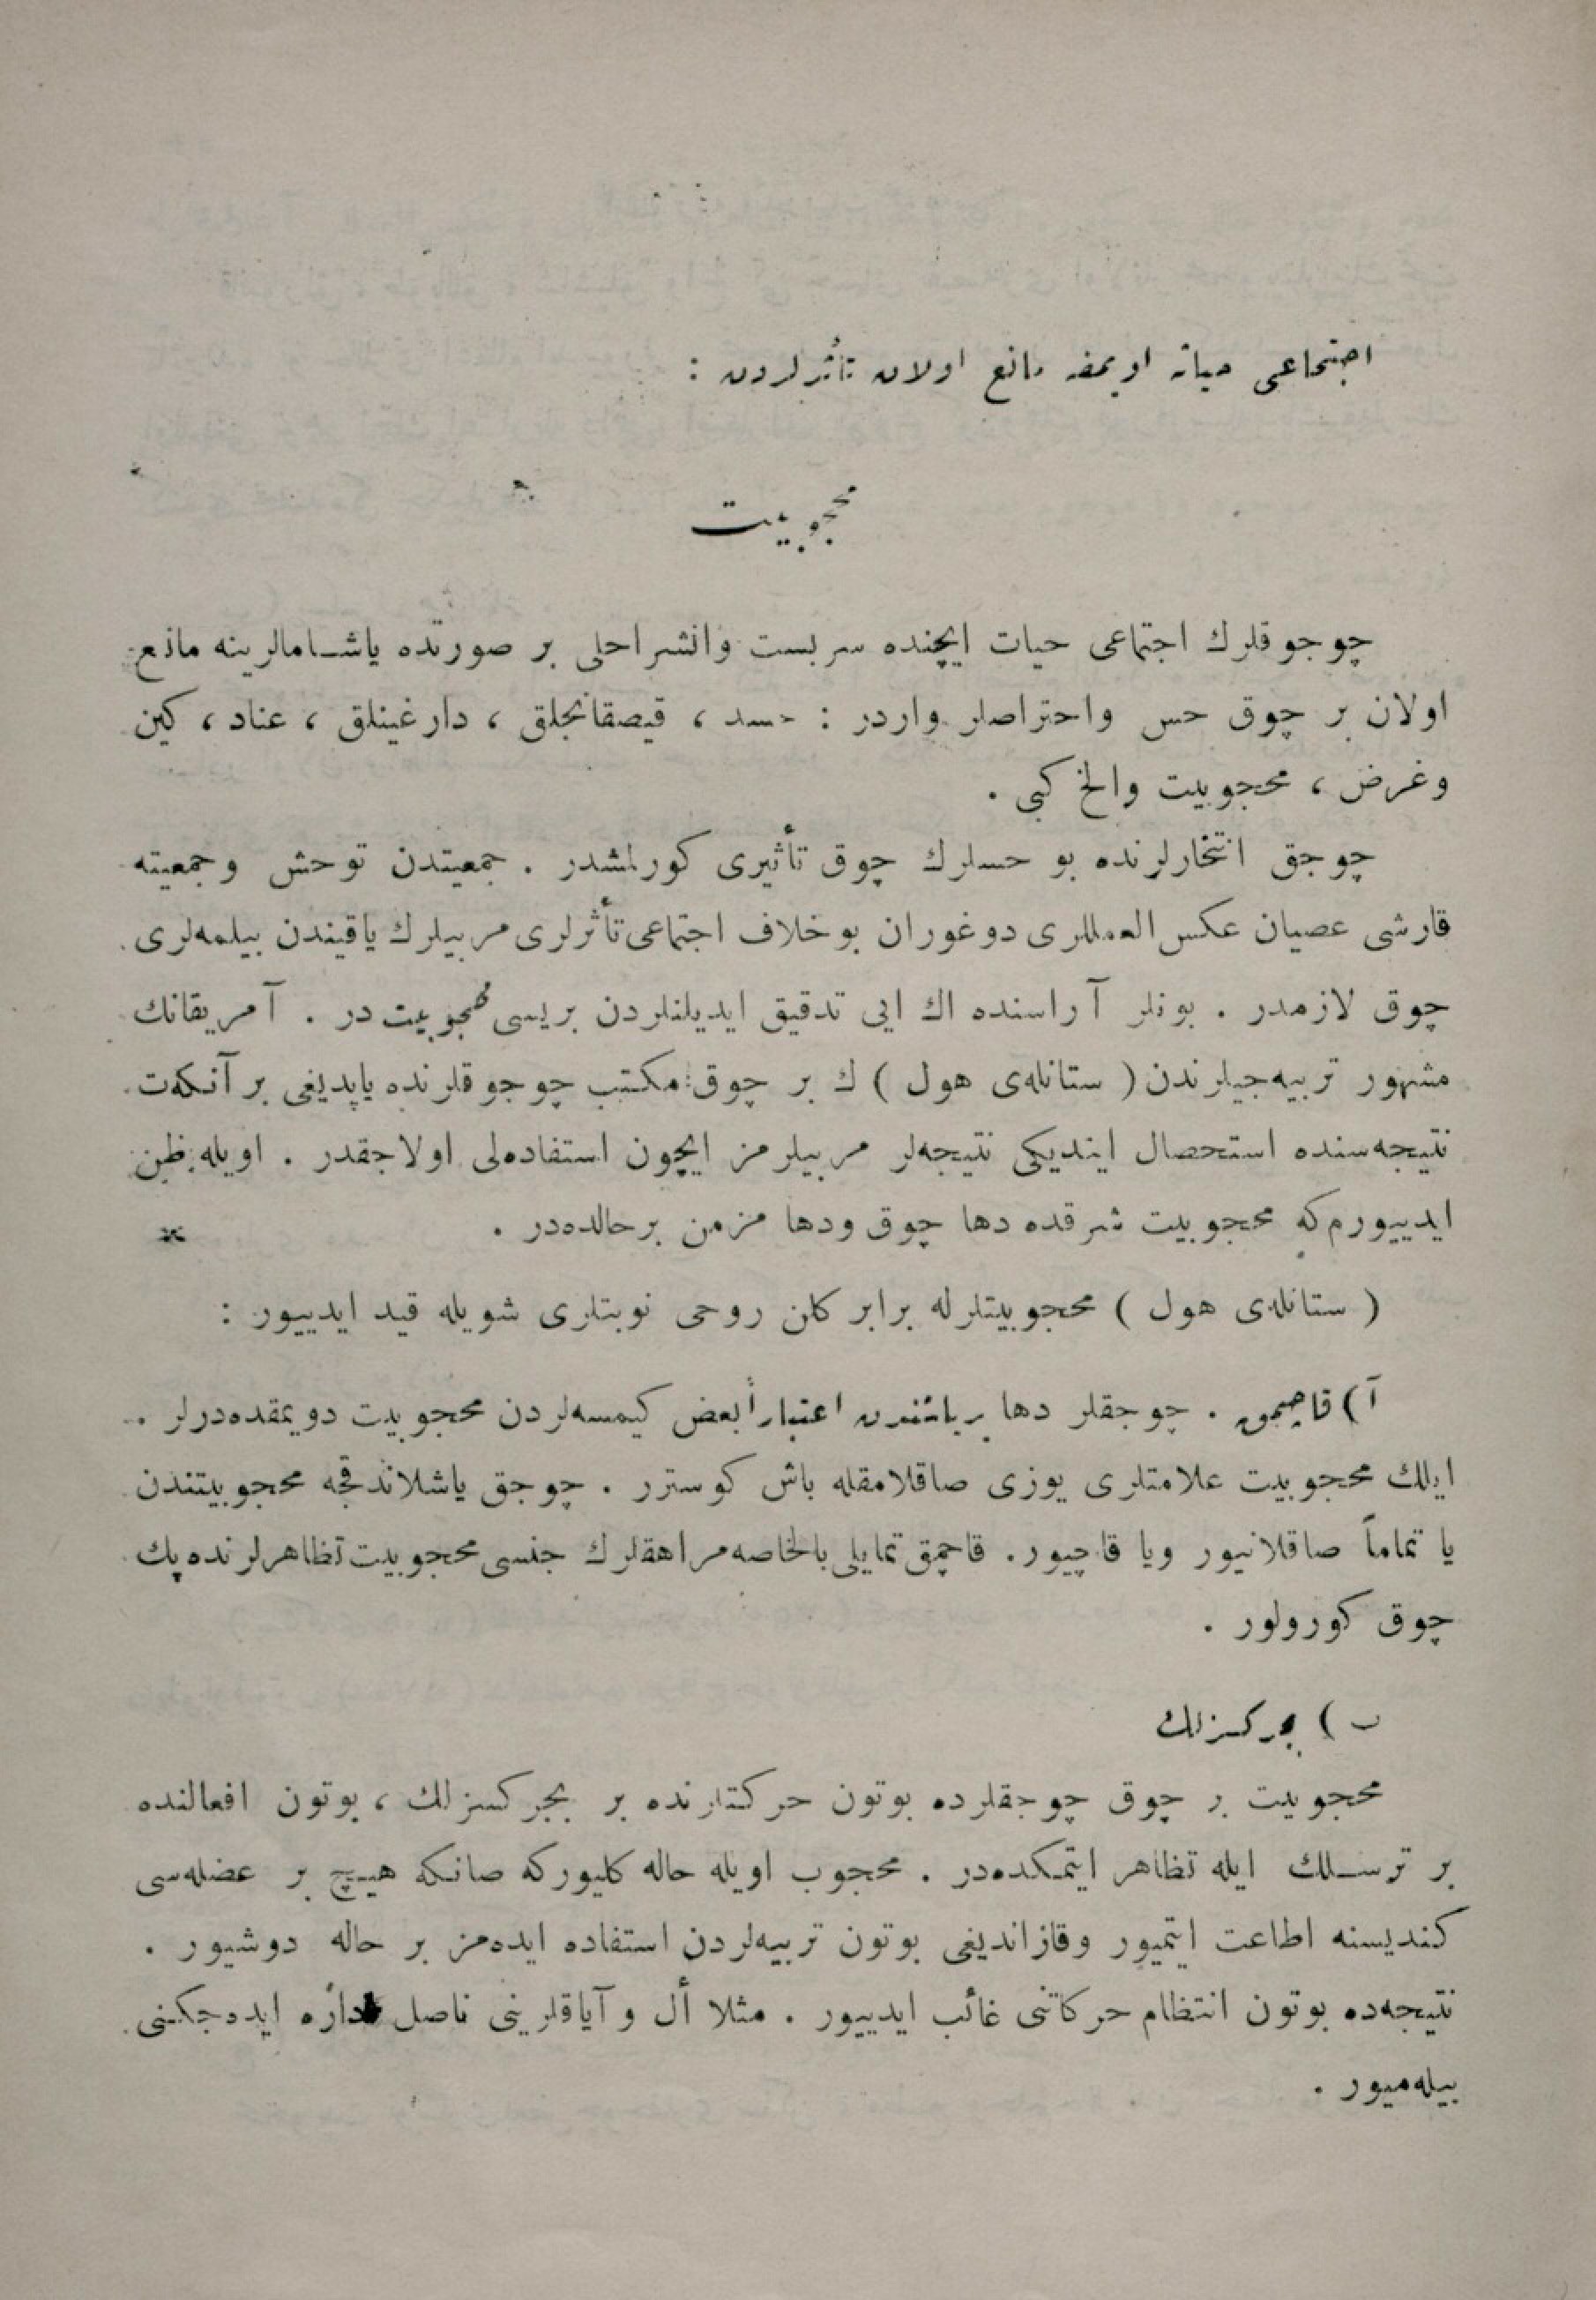 اجتماعی حیاته اویمغه مانع اولان تأثرلردن :
محجوبیت
چوجوقلرك اجتماعی حیات ایچنده سربست وانشراحلی بر صورتده یاشامالرینه مانع
اولان بر چوق حس واحتراصلر واردر : حسد ، قیصقانجلق ، دارغینلق ، عناد ، كین
وغرض ، محجوبیت والخ كبی .
چوجق انتحارلرنده بو حسلرك چوق تأثیری كورلمشدر . جمعیتدن توحش وجمعیته
قارشی عصیان عكس العمللری دوغوران بوخلاف اجتماعی تأثرلری مربیلرك یاقیندن بیلمه‌لری
چوق لازمدر . بونلر آراسنده اك ایی تدقیق ایدیلنلردن بریسی محجوبیت در . آمریقانك
مشهور تربیه‌جیلرندن ( ستانله‌ی هول ) ك بر چوق مكتب چوجوقلرنده یاپدیغی بر آنكه‌ت
نتیجه‌سنده استحصال ایتدیكی نتیجه‌لر مربیلرمز ایچون استفاده‌لی اولاجقدر . اویله ظن
ایدییورم‌كه محجوبیت شرقده دها چوق ودها مزمن برحالده‌در .
( ستانله‌ی هول ) محجوبیتلرله برابر كلن روحی نوبتلری شویله قید ایدییور :
آ ) قاچمق . چوجقلر دها بر یاشندن اعتباراً بعض كیمسه‌لردن محجوبیت دویمقده‌درلر .
ایلك محجوبیت علامتلری یوزی صاقلامقله باش كوسترر . چوجق یاشلاندقجه محجوبیتندن
یا تماماً صاقلانیور ویا قاچیور . قاچمق تمایلی بالخاصه مراهقلرك جنسی محجوبیت تظاهرلرنده پك
چوق كورولور .
ب ) بجركسزلك
محجوبیت بر چوق چوجقلرده بوتون حركتلرنده بر بجركسزلك ، بوتون افعالنده
بر ترسلك ایله تظاهر ایتمكده‌در . محجوب اویله حاله كلیوركه صانكه هیچ بر عضله‌سی
كندیسنه اطاعت ایتمیور وقازاندیغی بوتون تربیه‌لردن استفاده ایده‌مز بر حاله دوشیور .
نتیجه‌ده بوتون انتظام حركاتنی غائب ایدییور . مثلا أل و آیاقلرینی ناصل اداره ایده‌جكنی
بیله‌میور .